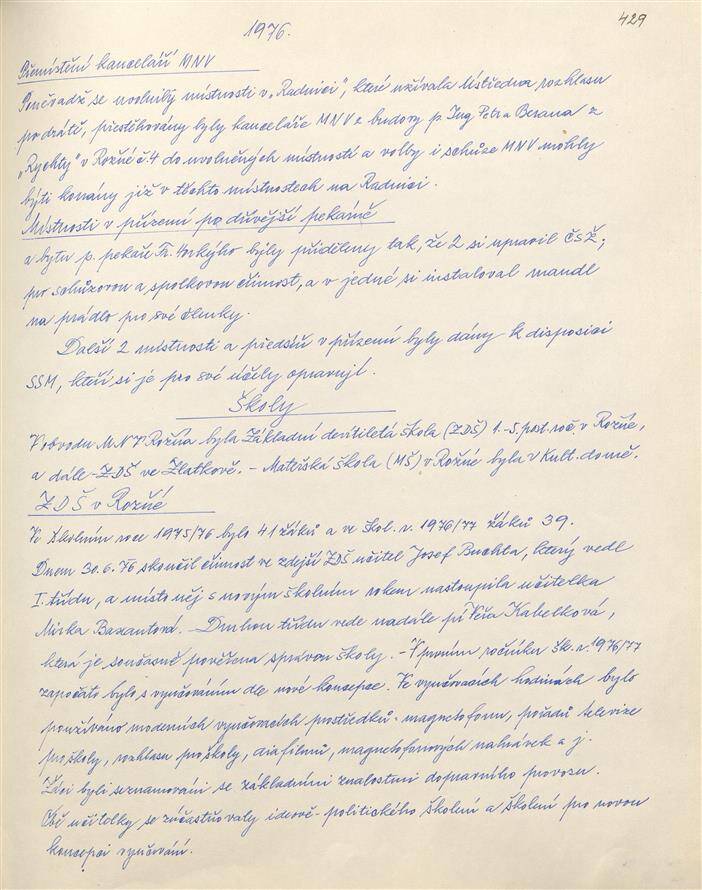 429
1976.
Přemístění kanceláří MNV
Poněvadž se uvolnily místnosti v „Radnici", které užívala Ústředna rozhlasu
po drátě, přestěhovány byly kanceláře MNV z budovy p. Ing. Petra Berana z
„Rychty" v Rožné č. 4 do uvolněných místností a volby i schůze MNV mohly
býti konány již v těchto místnostech na Radnici.
Místnosti v přízemí po dřívější pekárně
a bytu p. pekaře Fr. byly přiděleny tak, že 2 si upravil ČSŽ,
pro schůzovou a spolkovou činnost, a v jedné si instaloval mandl
na prádlo pro své členky.
Další 2 místnosti a předsíň v přízemí byly dány k disposici
SSM, kteří si je pro své účely opravují.
Školy
V obvodu MNV Rožná byla Základní devítiletá škola (ZDŠ) 1.-5. post. roč. v Rožné,
a dále - ZDŠ ve Zlatkově. - Mateřská škola (MŠ) v Rožné byla v Kult. domě.
ZDŠ v Rožné
Ve školním roce 1975/76 bylo 41 žáků a ve škol. r. 1976/77 žáků 39.
Dnem 30.6.76 skončil činnost ve zdejší ZDŠ učitel Josef Buchta, který vedl
I. třídu, a místo něj s novým školním rokem nastoupila učitelka
Mirka Bazantová. - Druhou třídu vede nadále pí Věra Kabelková,
která je současně pověřena správou školy. - V prvním ročníku šk. r. 1976/77
započato bylo s vyučováním dle nové koncepce. Ve vyučovacích hodinách bylo
používáno moderních vyučovacích prostředků - magnetofonu, pořadů televize
pro školy, rozhlasu pro školy, diafilmů, magnetofonových nahrávek a j.
Žáci byli seznamováni se základními znalostmi dopravního provozu.
Obě učitelky se zúčastňovaly ideově-politického školení a školení pro novou
koncepci vyučování.